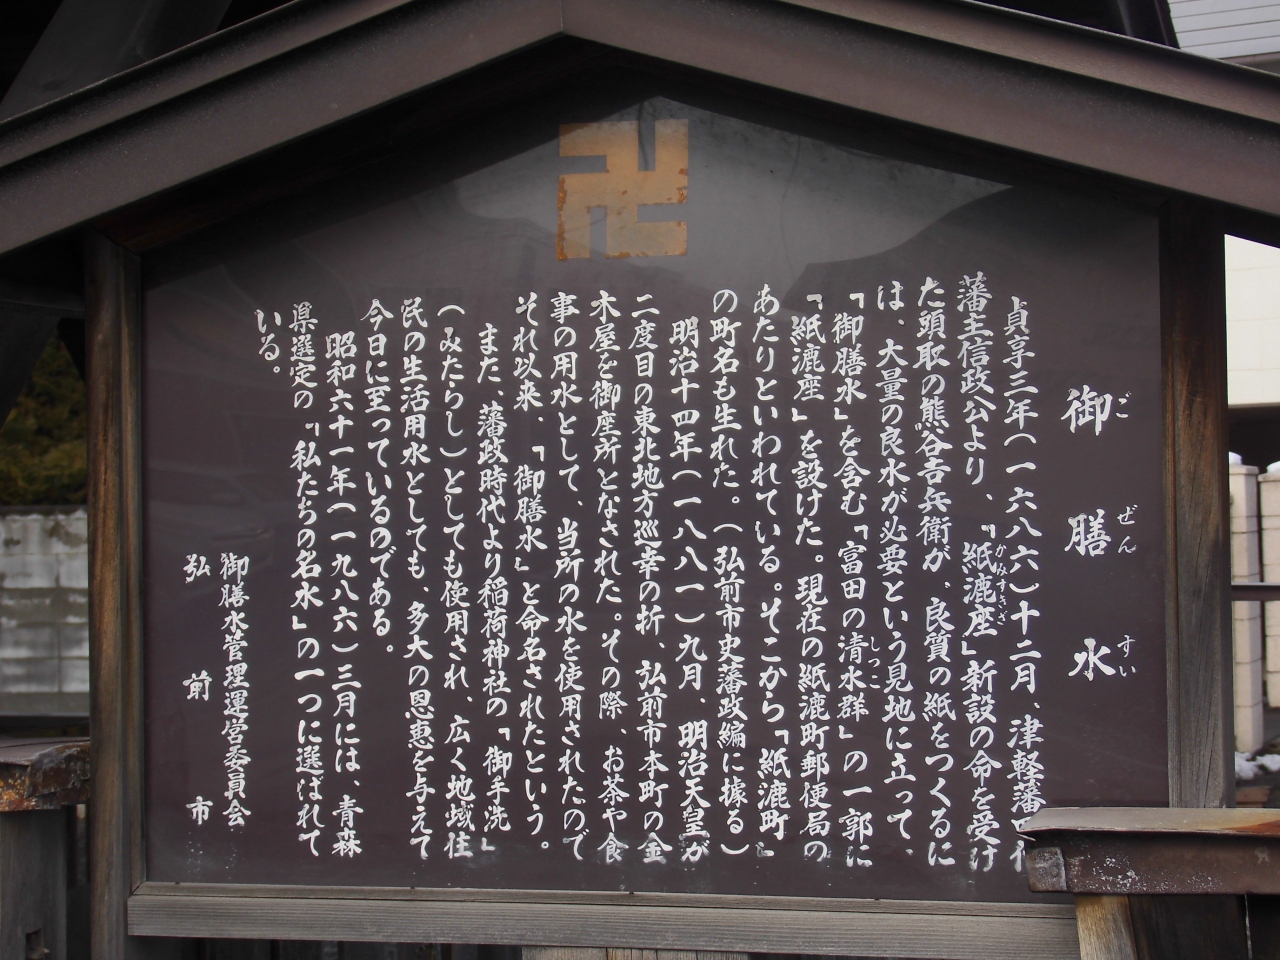 御膳水
ごぜんすい
貞享三年(一六八六)十二月、津軽藩四代
藩主信政公より、「紙漉座」新設の命を受け
かみすきざ
た頭取の熊谷吉兵衛が、良質の紙をつくるに
は、大量の良水が必要という見地に立って、
「御膳水」を含む「富田の清水群」の一郭に
しつこ
「紙漉座」を設けた。現在の紙漉町郵便局の
あたりといわれている。そこから「紙漉町」
の町名も生れた。(弘前市史藩政編に據る)
明治十四年(一八八一)九月、明治天皇が
二度目の東北地方巡幸の折、弘前市本町の金
木屋を御座所となされた。その際、お茶や食
事の用水として、当所の水を使用されたので
それ以来、「御膳水」と命名されたという。
また、藩政時代より稲荷神社の「御手洗」
(みたらし)としても使用され、広く地域住
民の生活用水としても、多大の恩恵を与えて
今日に至っているのである。
昭和六十一年(一九八六)三月には、青森
県選定の「私たちの名水」の一つに選ばれて
いる。
御膳水管理運営委員会
弘前市